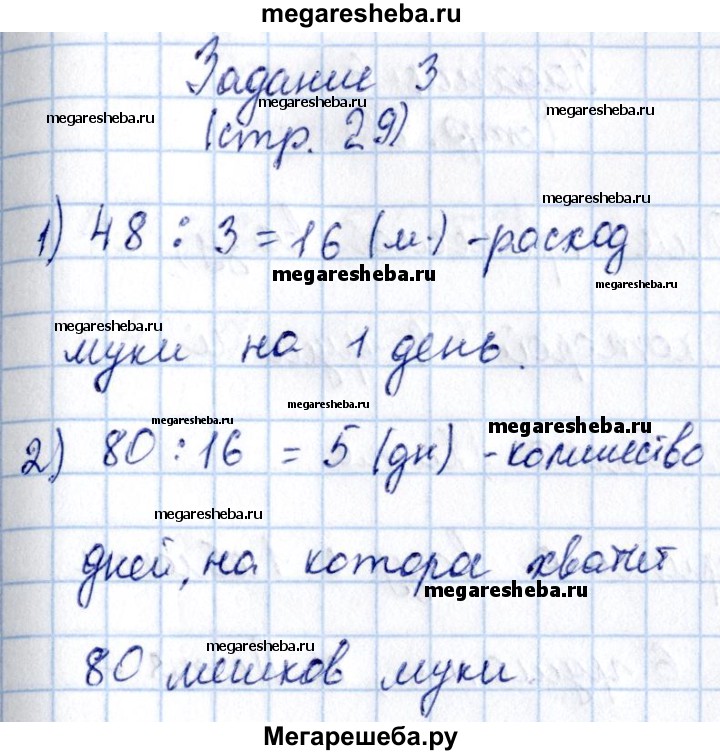 megaresheba.ru
Задание 3
megaresheba.ru
megaresheba.ru
megaresheba.ru
(стр. 29)
megaresheba.ru
megaresheba.ru
1) 48 : 3 = 16 (м.) - расход
megaresheba.ru
megaresheba.ru
megaresheba.ru
муки на 1 день.
megaresheba.ru
megaresheba.ru
megaresheba.ru
2) 80 : 16 = 5 (дн) - количество
megaresheba.ru
дней, на котора хватит
megaresheba.ru
megaresheba.ru
80 мешков муки
Мегарешеба.ру